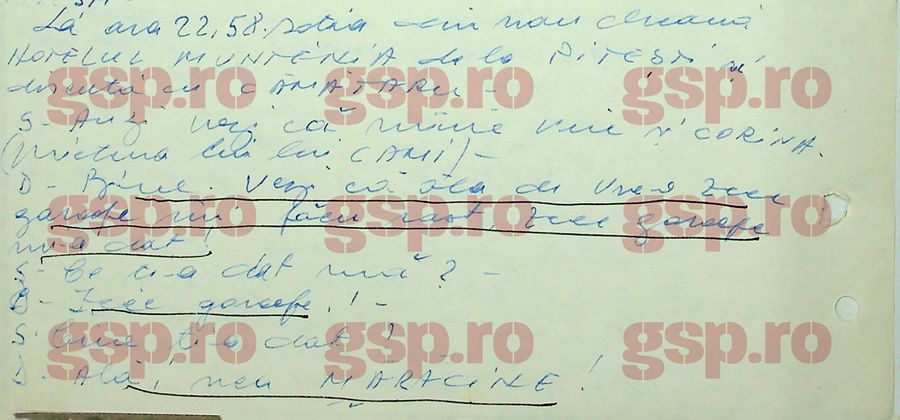 La ora 22,58. soția din nou cheamă
HOTELUL MUNTENIA de la PITEȘTI și
discută cu CĂMĂTARU -
S- Auzi vezi că mîine vine și CORINA.
(prietena lui lui CAMI) -
D - Bine. Vezi că ăla de vreo zece
garoafe mi făcu rost, zece garoafe
mi-a dat!
S- Ce ți-a dat mă? -
D- Zece garoafe! -
S. Cine ți-a dat?
D- Ăla, nea MĂRĂCINE!
gsp.ro gsp.ro gsp.ro
gsp.ro gsp.ro gsp.ro
gsp.ro gsp.ro gsp.ro